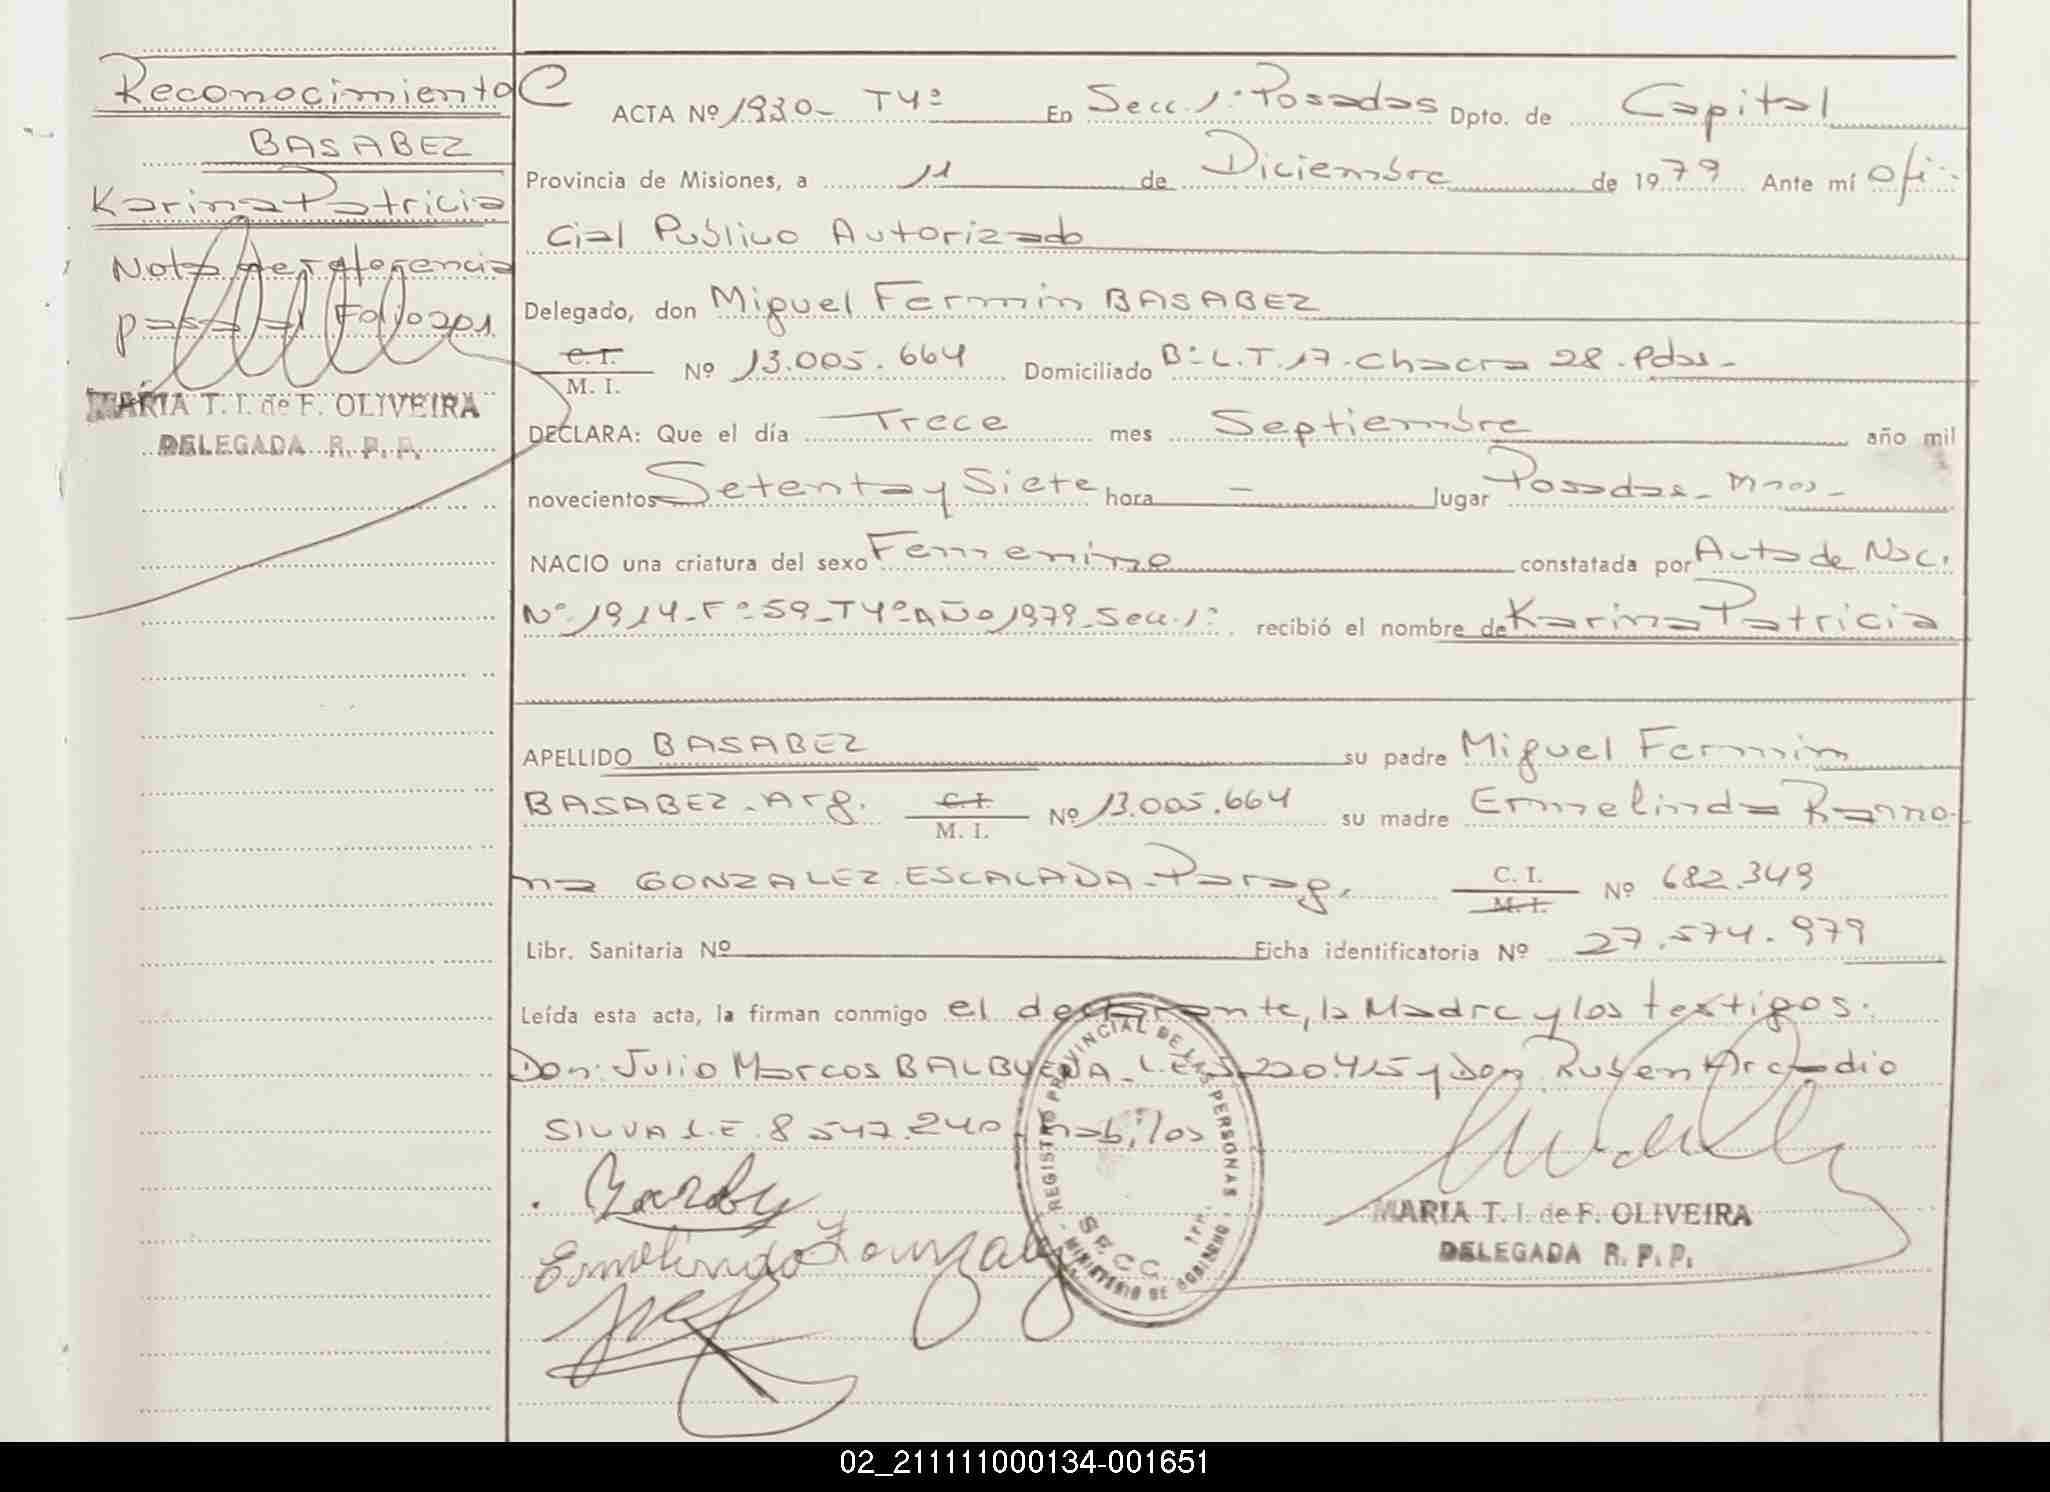 Reconocimiento C
BASABEZ
Karina Patricia
Nota de referencia
pasa al Folio 201
MARIA T. I. de F. OLIVEIRA
DELEGADA R. P. P.
ACTA Nº 1930- T4º En Secc. 1º Posadas Dpto. de Capital
Provincia de Misiones, a 11 de Diciembre de 1979 Ante mí ofi-
cial Publico Autorizado
Delegado, don Miguel Fermin BASABEZ
C.I. / M. I. Nº 13.005.664 Domiciliado Bº L.T. 17-Chacra 28-Pdas-
DECLARA: Que el día Trece mes Septiembre año mil
novecientos Setenta y Siete hora - lugar Posadas-Mnes-
NACIO una criatura del sexo Femenino constatada por Acta de Nac.
Nº 1914-Fº 59-T4º-AÑo 1979-Secc. 1º recibió el nombre de Karina Patricia
APELLIDO BASABEZ su padre Miguel Fermin
BASABEZ-Arg. C.I. / M. I. Nº 13.005.664 su madre Ermelinda Ramo-
na GONZALEZ ESCALADA-Parag. C. I. / M. I. Nº 682.349
Libr. Sanitaria Nº Ficha identificatoria Nº 27.574.979
Leída esta acta, la firman conmigo el declarante, la Madre y los testigos:
Don: Julio Marcos BALBUENA-L.E. 5220415 y Don Ruben Arcadio
SILVA L.E. 8 547.240 habiles
Ermelinda Gonzalez
REGISTRO PROVINCIAL DE LAS PERSONAS
SECC. 1ra.
MINISTERIO DE GOBIERNO
MARIA T. I. de F. OLIVEIRA
DELEGADA R. P. P.
02_211111000134-001651